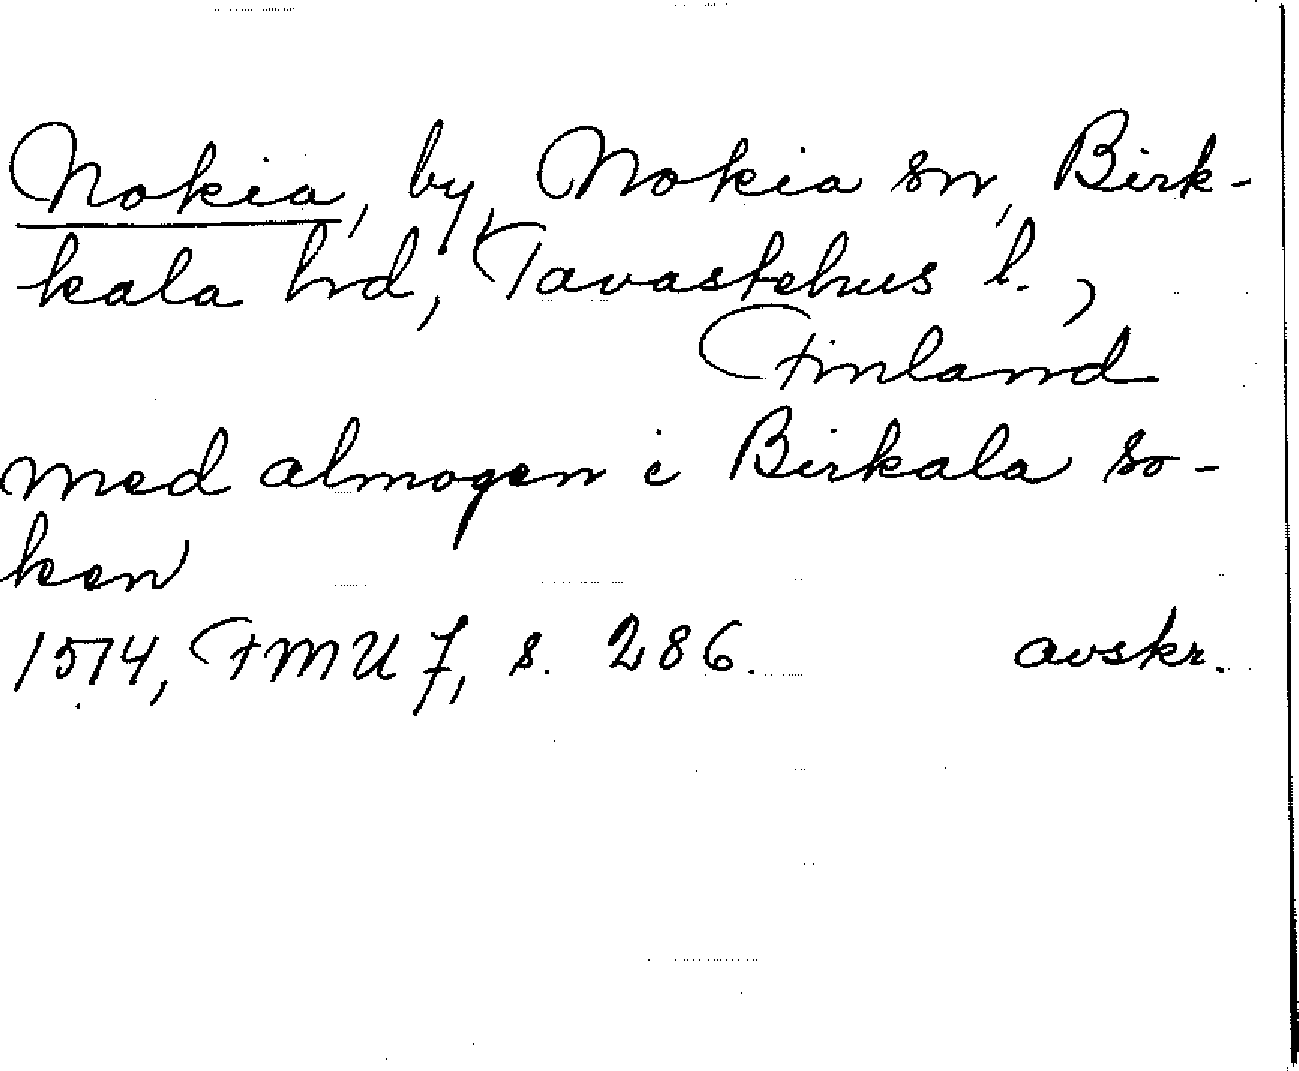 Nokia, by, Nokia sn, Birk-
kala hd, Tavastehus l.,
Finland
med almogen i Birkala so-
ken
1574, FMU 7, s. 286. avskr.